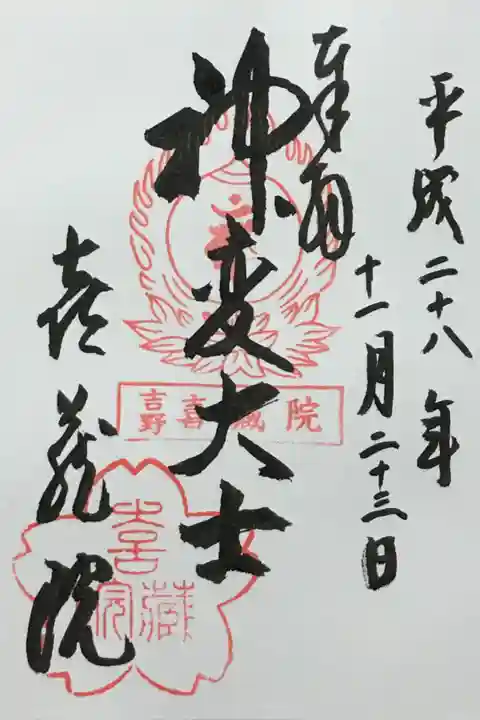 平成二十八年
十一月二十三日
奉拝
神変大士
喜蔵院
吉野 喜蔵院
喜蔵院